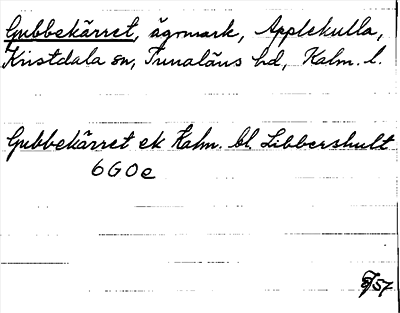 Gubbekärret, ägomark, Applekulla,
Kristdala sn, Tunaläns hd, Kalm. l.
Gubbekärret ek Kalm. bl. Libbershult
6G0e
57